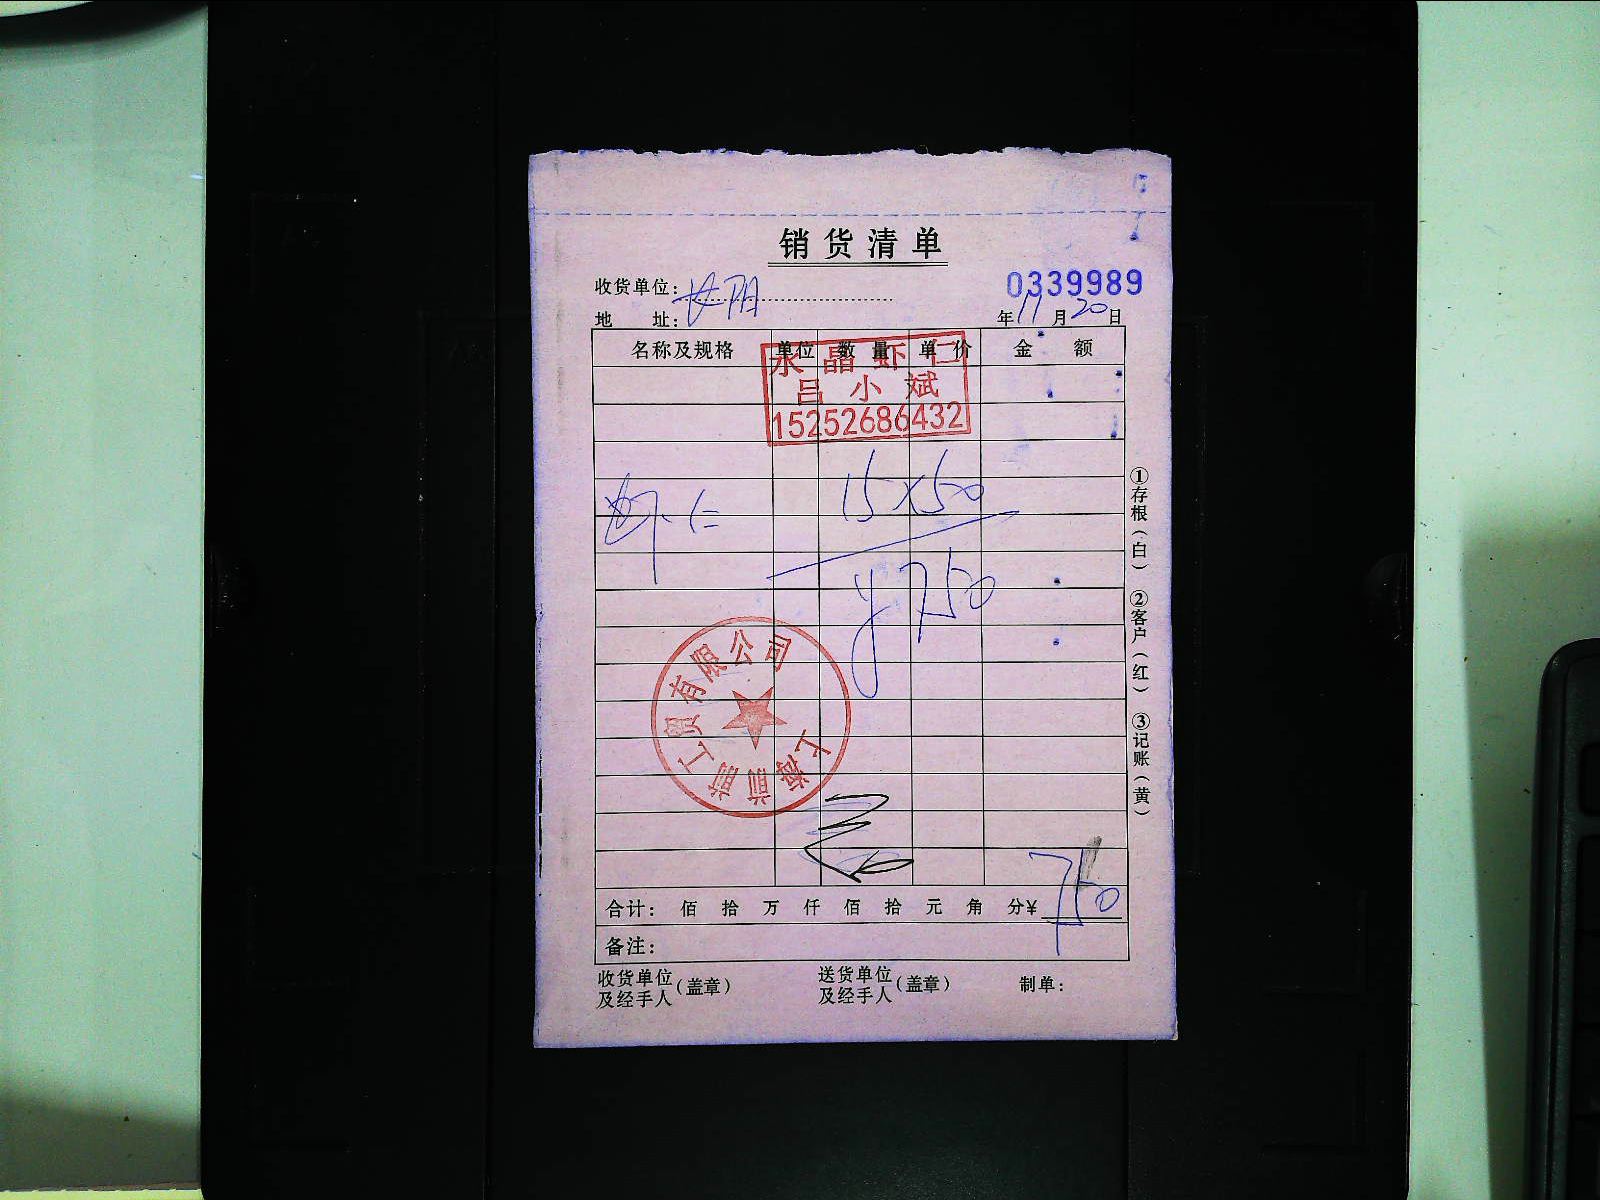 销货清单
收货单位：长阳
0339989
地 址：
年11月20日
名称及规格 单位 数量 单价 金额
水晶虾仁
吕小斌
15252686432
虾仁 15×50
¥750
上海前前工贸有限公司
合计： 佰 拾 万 仟 佰 拾 元 角 分¥750
备注：
收货单位及经手人（盖章）
送货单位及经手人（盖章）
制单：
①存根（白） ②客户（红） ③记账（黄）